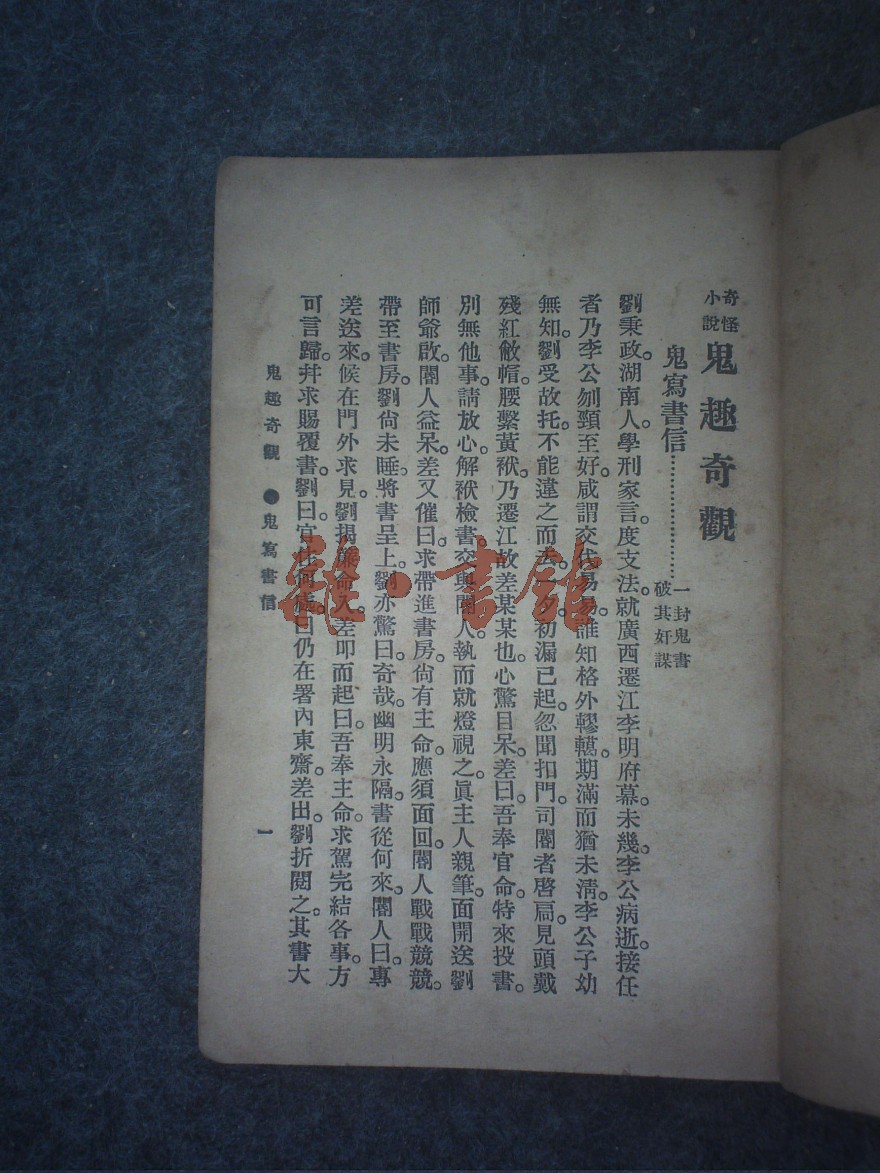 奇怪小說
鬼趣奇觀
鬼寫書信…………………一封鬼書破其奸謀
劉秉政。湖南人學刑家言。度支法。就廣西遷江李明府幕。未幾。李公病逝。接任
者乃李公刎頸至好。咸謂交代易易。誰知格外轇轕。期滿而猶未淸。李公子幼
無知。劉受故托。不能違之而去。一夕。初漏已起。忽聞扣門。司閽者啓扃。見頭戴
殘紅敝帽。腰繫黃袱。乃遷江故差某某也。心驚目呆。差曰。吾奉官命。特來投書。
別無他事。請放心。解袱檢書。交與閽人。執而就燈視之。眞主人親筆。面開送劉
師爺啟。閽人益呆。差又催曰。求帶進書房。尙有主命。應須面回。閽人戰戰競競。
帶至書房。劉尙未睡。將書呈上。劉亦驚曰。奇哉。幽明永隔。書從何來。閽人曰。專
差送來。候在門外求見。劉揭簾命入。差叩而起曰。吾奉主命。求駕完結各事。方
可言歸。幷求賜覆書。劉曰。官在何處。曰仍在署內東齋。差出。劉折閱之。其書大
鬼趣奇觀 ●鬼寫書信
一
雜·書館